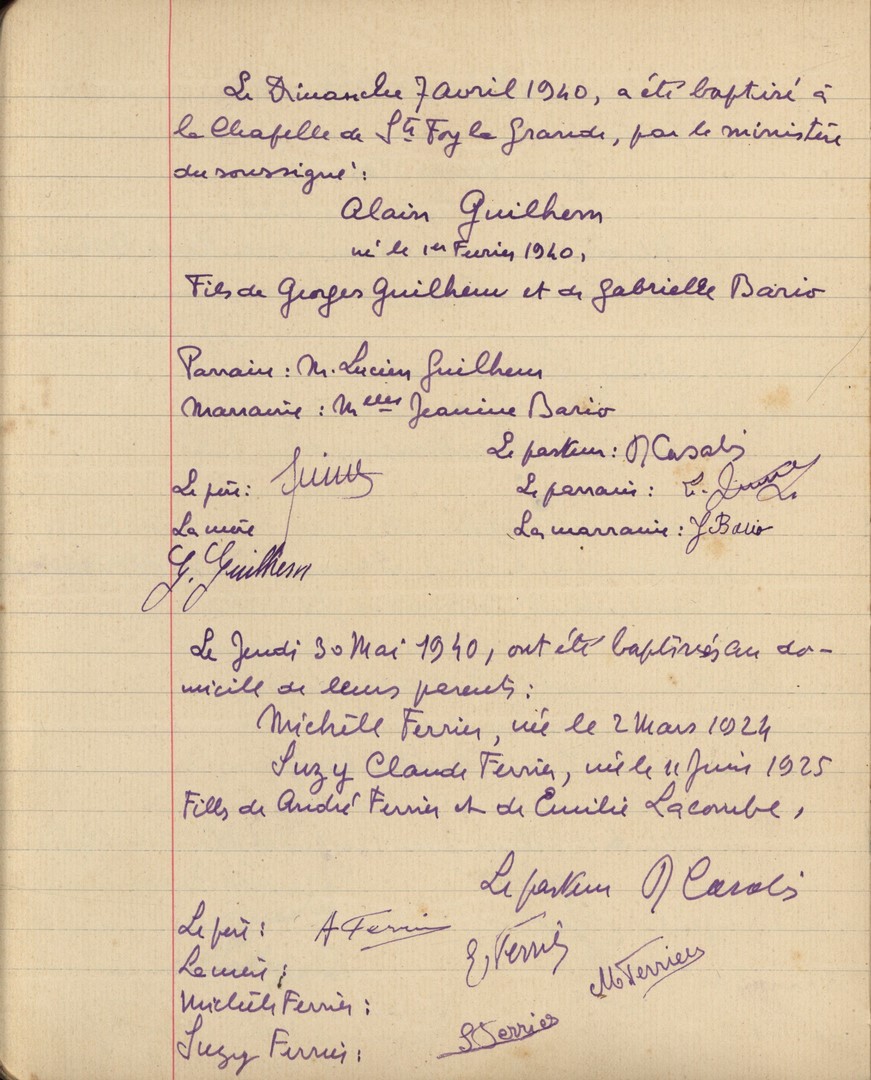 Le Dimanche 7 avril 1940, a été baptisé à
la Chapelle de Ste Foy la Grande, par le ministère
du soussigné :
Alain Guilhem
né le 1er Fevrier 1940,
Fils de Georges Guilhem et de Gabrielle Bario
Parrain : M. Lucien Guilhem
Marraine : Melle Jeanine Bario
Le pasteur : R Casalis
Le père :
Le parrain : L.
La mère
La marraine : J Bario
G. Guilhem
Le Jeudi 30 Mai 1940, ont été baptisées au do-
micile de leurs parents :
Michèle Ferrier, née le 2 Mars 1924
Suzy Claude Ferrier, née le 11 Juin 1925
Filles de André Ferrier et de Emilie Lacombe,
Le pasteur R Casalis
Le père : A Ferrier
La mère : E. Ferrié
Michèle Ferrier : M Ferrier
Suzy Ferrier : S Ferrier